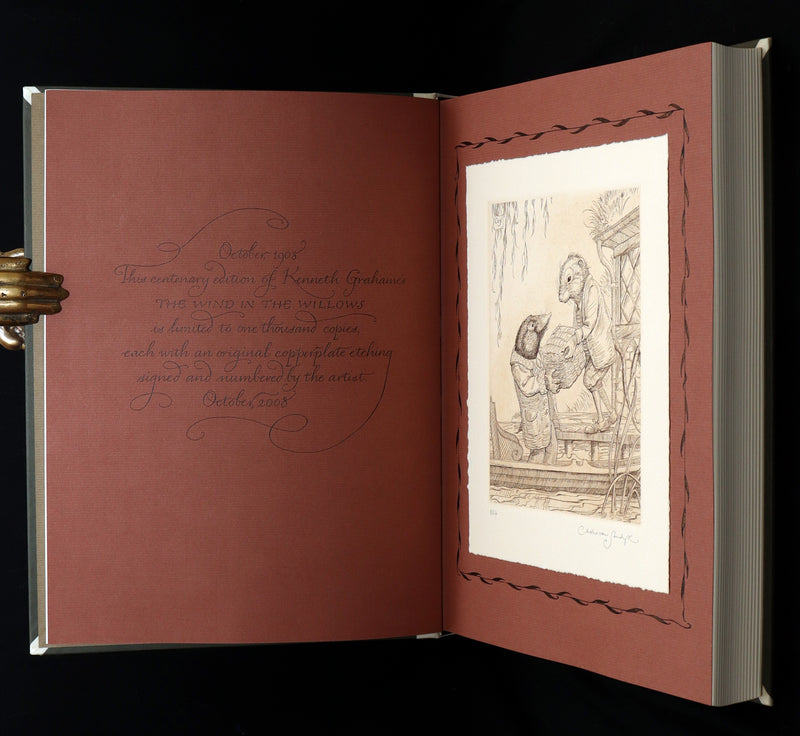 October 1908
This centenary edition of Kenneth Grahame's
THE WIND IN THE WILLOWS
is limited to one thousand copies,
each with an original copperplate etching
signed and numbered by the artist.
October, 2008